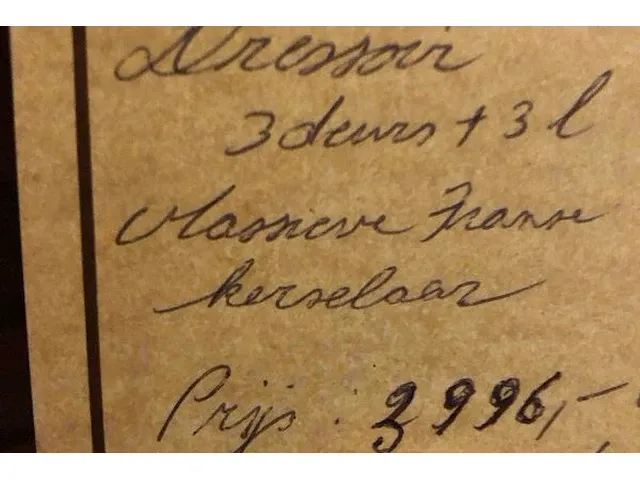 Dressoir
3 deurs + 3 l
Massieve Franse
kerselaar
Prijs : 2996,-